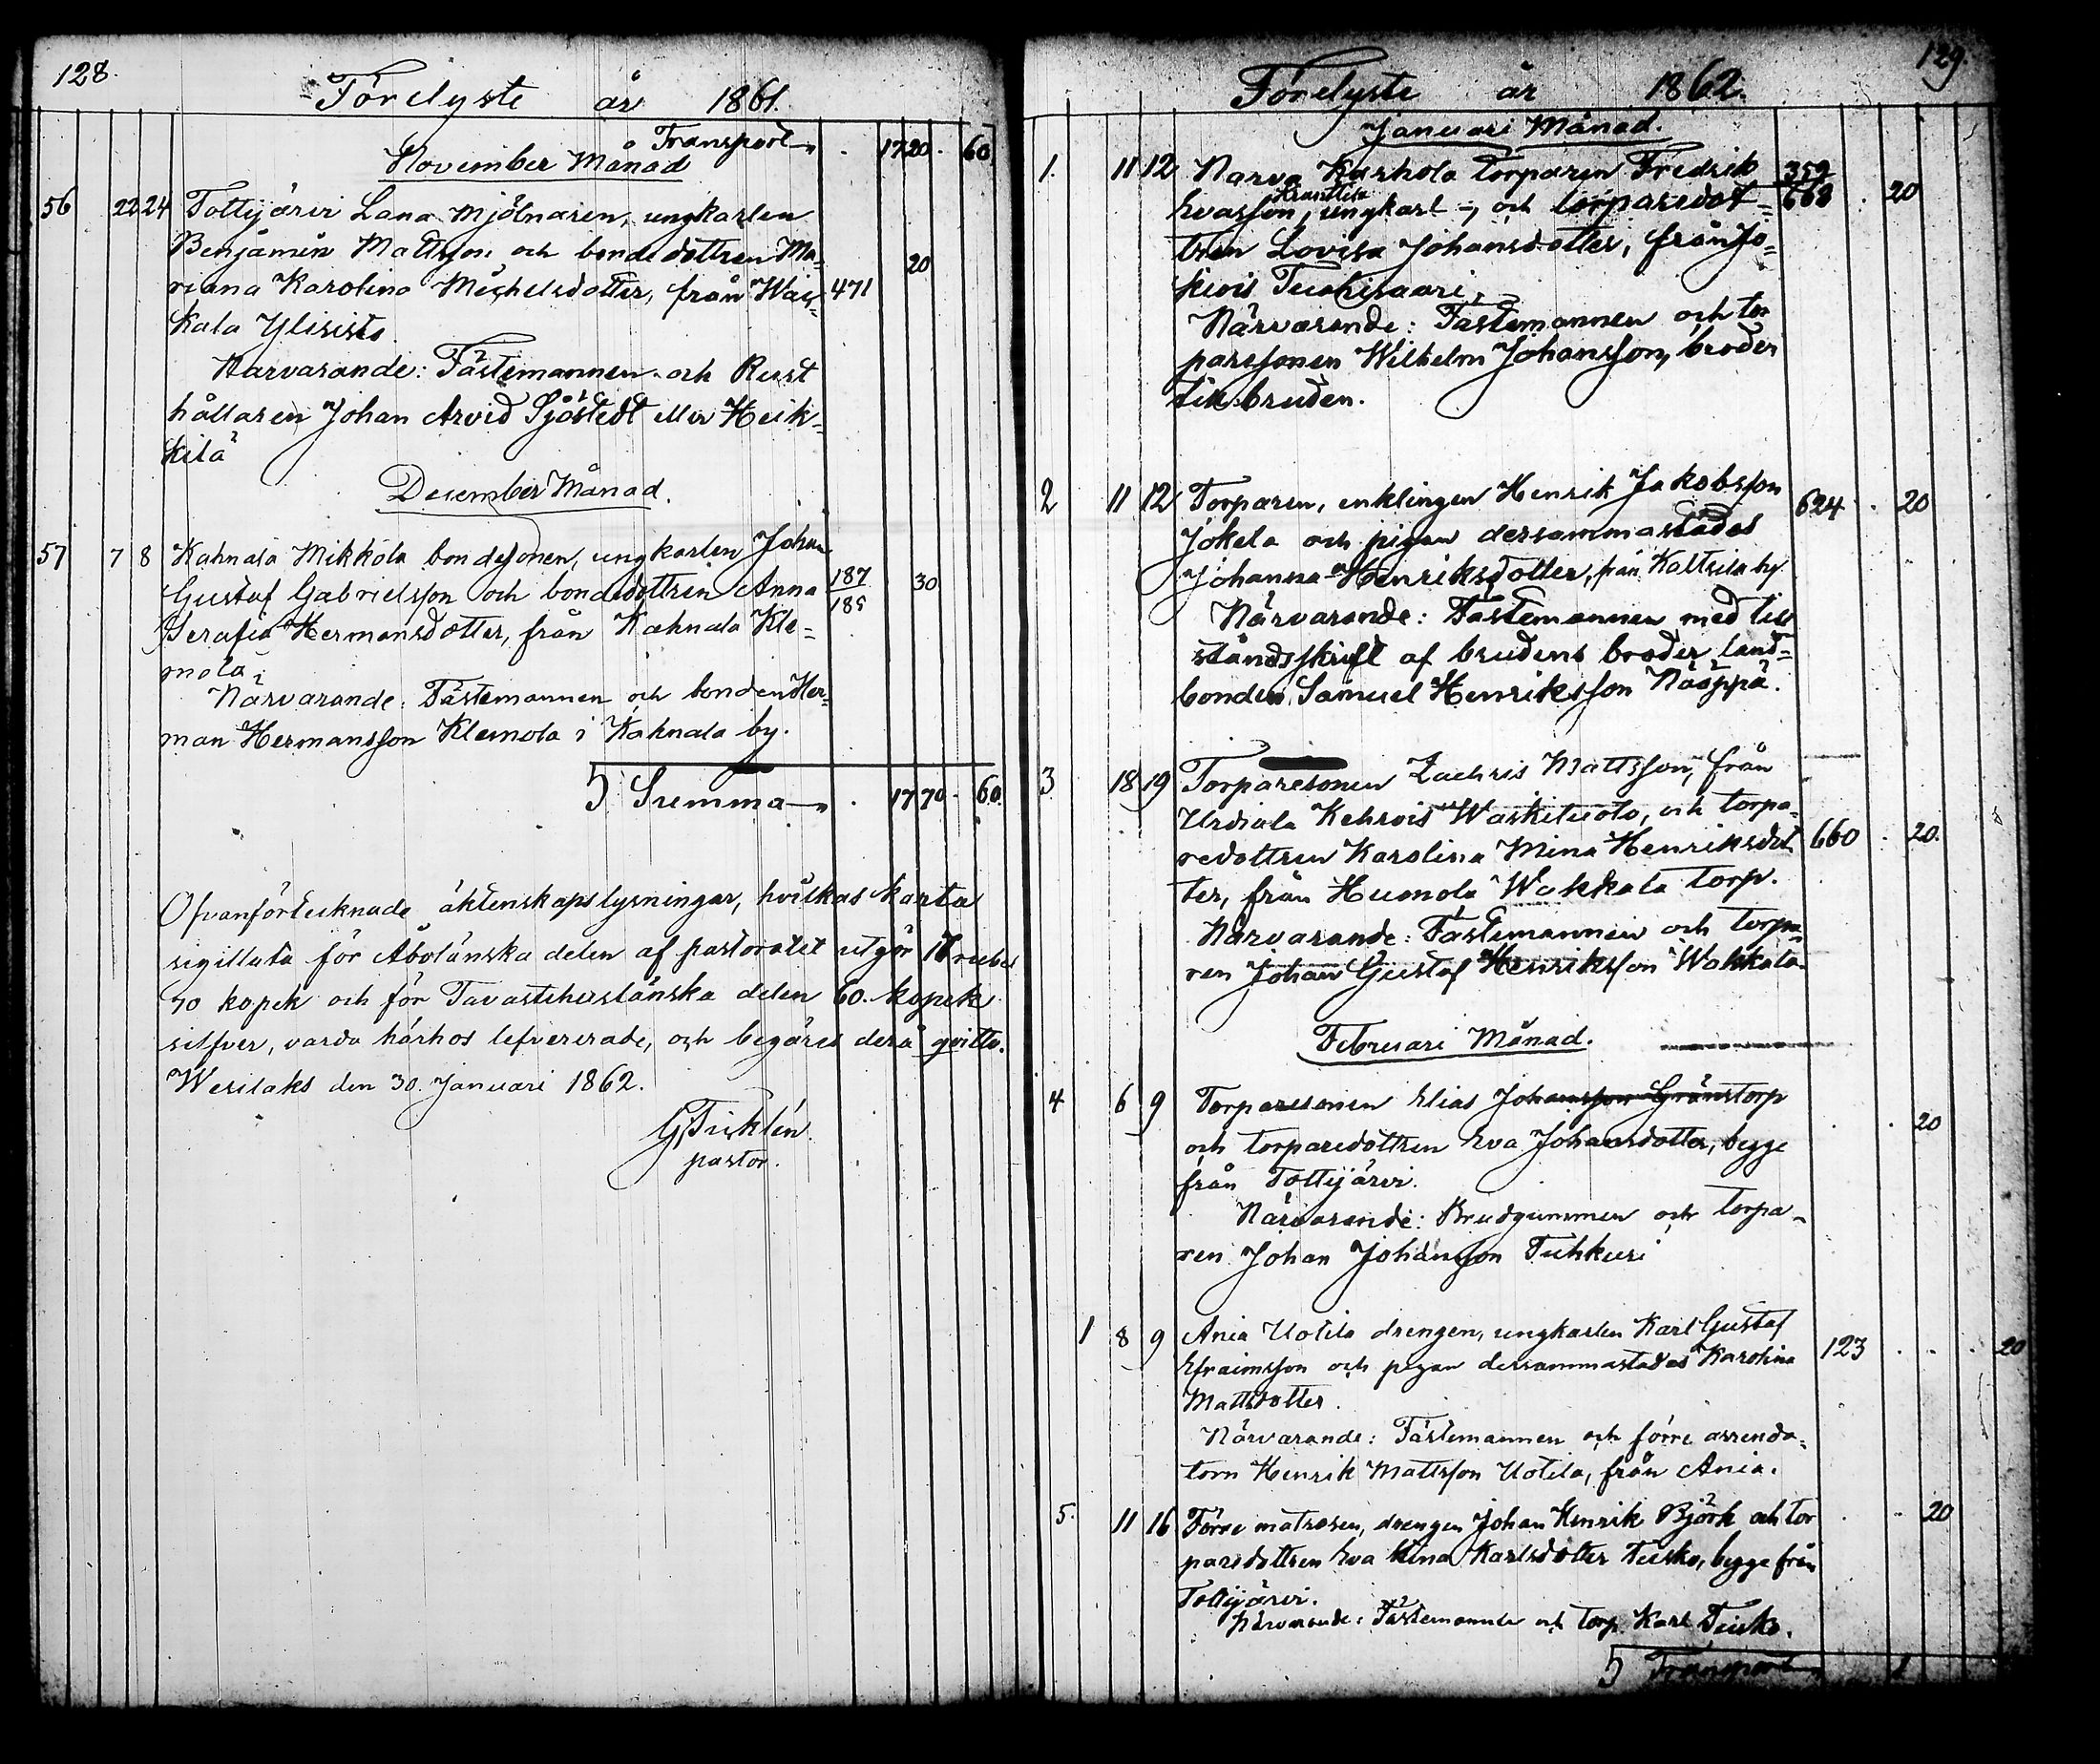 128.
Förelyste år 1861.
Transport " . 17 20 . 60
November Månad
56 22 24 Tottijärvi Lana Mjölnaren, ungkarlen
Benjamin Mattsson och bondedottren Ma= 20
riana Karolina Michelsdotter, från Wais= 471
kala Ylisisto
Närvarande: Fästemannen och Rust
hållaren Johan Arvid Sjöstedt eller Heik=
kilä
December Månad.
57 7 8 Kahnala Mikkola bondesonen, ungkarlen Johan
Gustaf Gabrielsson och bondedottren Anna 187 30
Serafia Hermansdotter, från Kahnala Kle= 185
mola;
Närvarande: Fästemannen och bonden Her=
man Hermansson Klemola i Kahnala by.
5 Summa " . 17 70 . 60.
Ofvanförtecknade äktenskapslysningar, hvilkas karta
sigillata för Åbolänska delen af pastoratet utgör 17 rubel
70 kopek och för Tavastehuslänska delen 60. kopek
silfver, varda härhos lefvererade, och begäres derå qvitto.
Wesilaks den 30. Januari 1862.
G Fricklén
pastor.
129.
Förelyste år 1862.
Januari Månad.
1. 11 12 Narva Karhola torparen Fredrik 359
Evasson, ungkarl =, och torparedot= 668 . 20
tren Lovisa Johansdotter, från Jo=
kiois
Närvarande: Fästemannen och tor
paresonen Wilhelm Johansson, broder
till bruden.
2 11 12 Torparen, enklingen Henrik Jakobsson 624 . 20
Jokela och pigan dersammastädes
Johanna Henriksdotter, från Kaltsila by
Närvarande: Fästemannen med till
ståndsskrift af brudens broder, land=
bonden Samuel Henriksson Näöppä.
3 18 19 Torparesonen Zachris Mattsson, från
Urdiala Kehrois Waskituoto, och torpa=
redottren Karolina Mina Henriksdot 660 . 20.
ter, från Huonola Wakkala torp.
Närvarande: Fästemannen och torpa=
ren Johan Gustaf Henriksson Wakkala
Februari Månad.
4 6 9 Torparesonen Elias Johansson Gränstorp
och torparedottren Eva Johansdotter, begge . . 20
från Tottijärvi.
Närvarande: Brudgummen och torpa=
ren Johan Johansson Tuhkuri
1 8 9 Ania Uotila drengen, ungkarlen Karl Gustaf
Efraimsson och pigan dersammastädes Karolina 123 . . . 20
Mattsdotter.
Närvarande: Fästemannen och förre arrenda=
torn Henrik Mattsson Uotila, från Ania.
5. 11 16 Förre matrosen, drengen Johan Henrik Björk och tor . . 20
paredottren Eva Lena Karlsdotter Teisko, begge från
Tottijärvi.
Närvarande: Fästemannen och torp. Karl Teisko.
5 Transport " 1